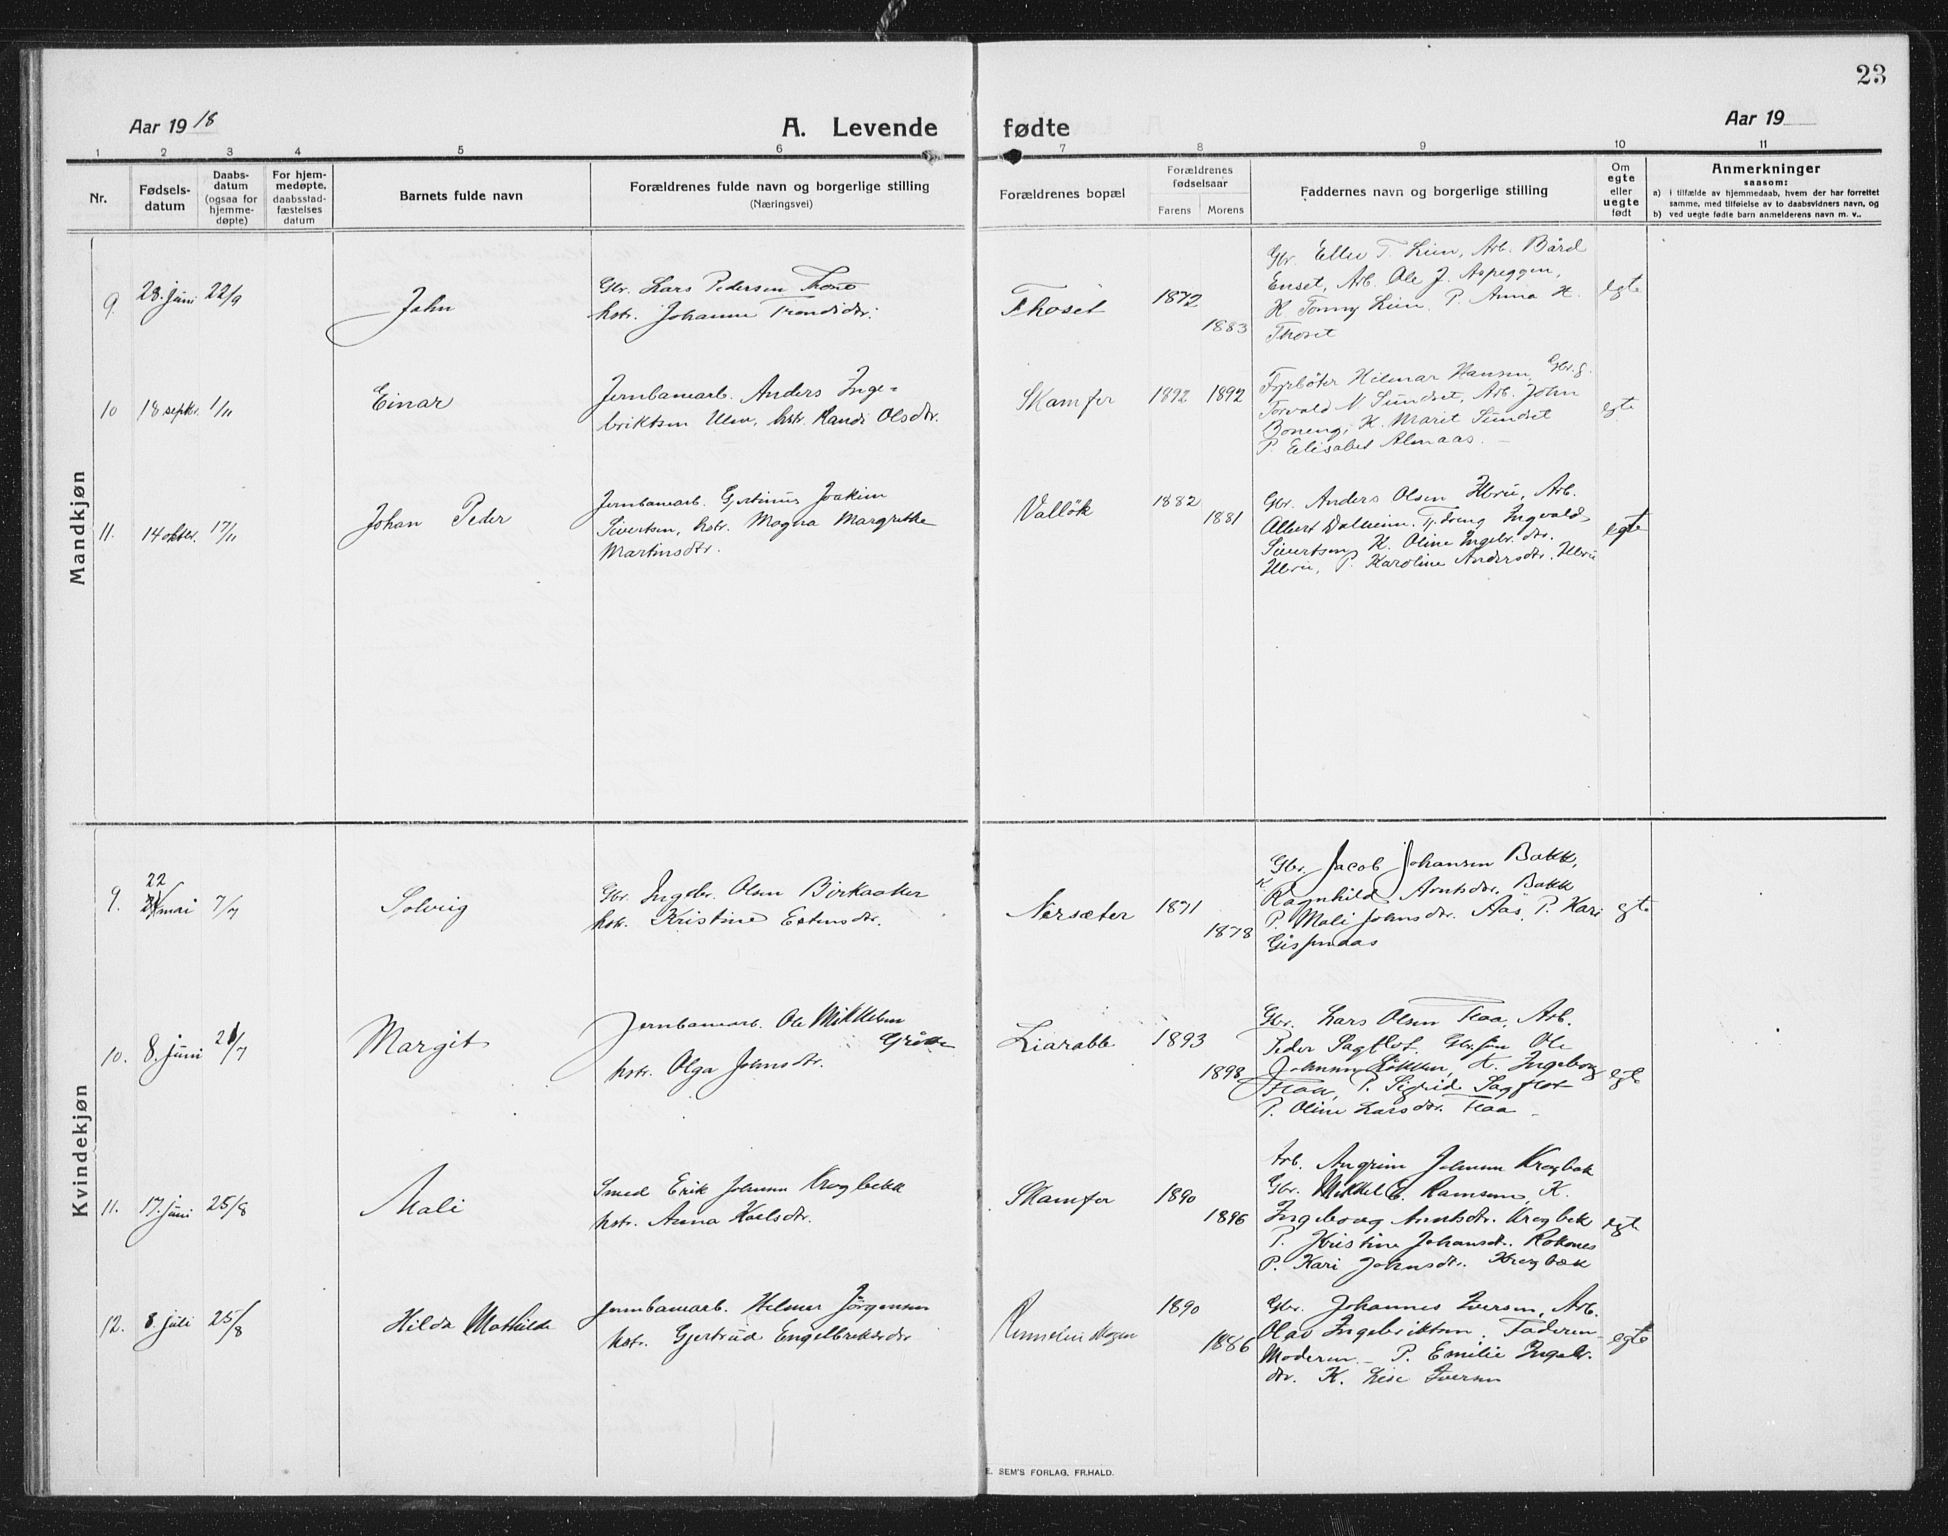 23
Aar 1918
A. Levende fødte
Aar 19
1 2 3 4 5 6 7 8 9 10 11
Nr.
Fødsels-
datum
Daabs-
datum
(ogsaa for
hjemme-
døpte)
For hjem-
medøpte,
daabsstad-
fæstelses
datum
Barnets fulde navn
Forældrenes fulde navn og borgerlige stilling
(Næringsvei)
Forældrenes bopæl
Forældrenes
fødselsaar
Farens Morens
Faddernes navn og borgerlige stilling
Om
egte
eller
uegte
født
Anmerkninger
saasom:
a) i tilfælde av hjemmedaab, hvem der har forrettet
samme, med tilføielse av to daabsvidners navn, og
b) ved uegte fødte barn anmelderens navn m. v..
Mandkjøn
9 23. juni 22/9
John
Gbr. Lars Pedersen
hstr. Johanne Trondsdtr.
Thoset
1872
1883
Gbr. Ellev T. Lien, Arb. Bård
Enset, Arb. Ole J. Aspeggen,
K Tonny Lien. P. Anna H.
Thoset
egte
10 18 septbr. 1/11
Einar
Jernbanearb. Anders Inge-
briktsen Ulen, hstr. Randi Olsdtr.
Skamfer
1892 1892
Fyrbøter Hilmar Hansen, Gbr.g.
Torvald N Sundset, Arb. John
Boneng, K. Marit Sundset
P. Elisabet Almaas. –
egte
11. 14 oktbr. 17/11
Johan Peder
Jernbanearb. Gjertinius Joakim
Sivertsen, hstr. Magna Margrethe
Martinsdtr.
Valløk
1882
1881
Gbr. Anders Olsen Hbru, Arb.
Albert Dalheim. Tj.dreng Ingvald
Sivertsen K. Oline Ingebr.dtr.
Hbru, P. Karoline Andersdtr. Hbru
egte
Kvindekjøn
9. 22 mai 7/7
Solveig
Gbr. Ingebr. Olsen Birkaaker
hstr. Kristine Estensdtr.
Nersæter
1871
1878
Gbr. Jacob Johansen Bakk,
K. Ragnhild Arntsdtr. Bakk
P. Mali Johnsdtr. Aas, P. Kari
Gisnaas
egte
10. 8. juni 21/7
Margit
Jernbanearb. Ole Mikkelsen
hstr. Olga Johnsdtr.
Liarabk.
1893
1898
Gbr. Lars Olsen Flaa, Arb.
Peder Sagflot, Gbr.søn Ole
Johnsen Løkken, K. Ingeborg
Flaa, P. Sigrid Sagflot
P. Oline Larsdtr. Flaa –
egte
11. 17. juni 25/8
Mali
Smed Erik Johnsen Krogbekk
hstr. Anna Karlsdtr.
Skamfer
1890
1896
Arb. Angrim Johnsen Krogbæk
Gbr. Mikkel E. Ramsem, K.
Ingeborg Arntsdtr. Krogbæk
P. Kristine Johansdtr. Roknes
P. Kari Johnsdtr. Krogbæk
egte
12. 8. juli 25/8
Hilda Mathilde
Jernbanearb. Helmer Jørgensen
hstr. Gjertrud Engelbriktsdtr
1890
1886
Gbr. Johannes Iversen, Arb.
Olav Ingebriktsen. Faderen
Moderen – P. Emilie Ingebr.
dtr. K. Lise Iversen
egte
E. SEM'S FORLAG, FR.HALD.